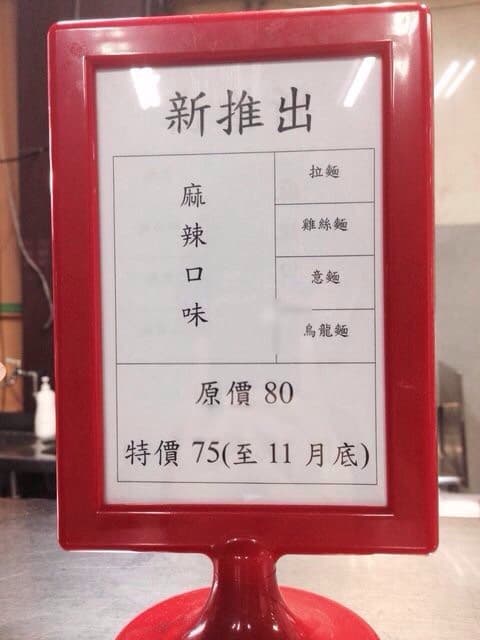 新推出
麻辣口味
拉麵
雞絲麵
意麵
烏龍麵
原價 80
特價 75(至 11 月底)